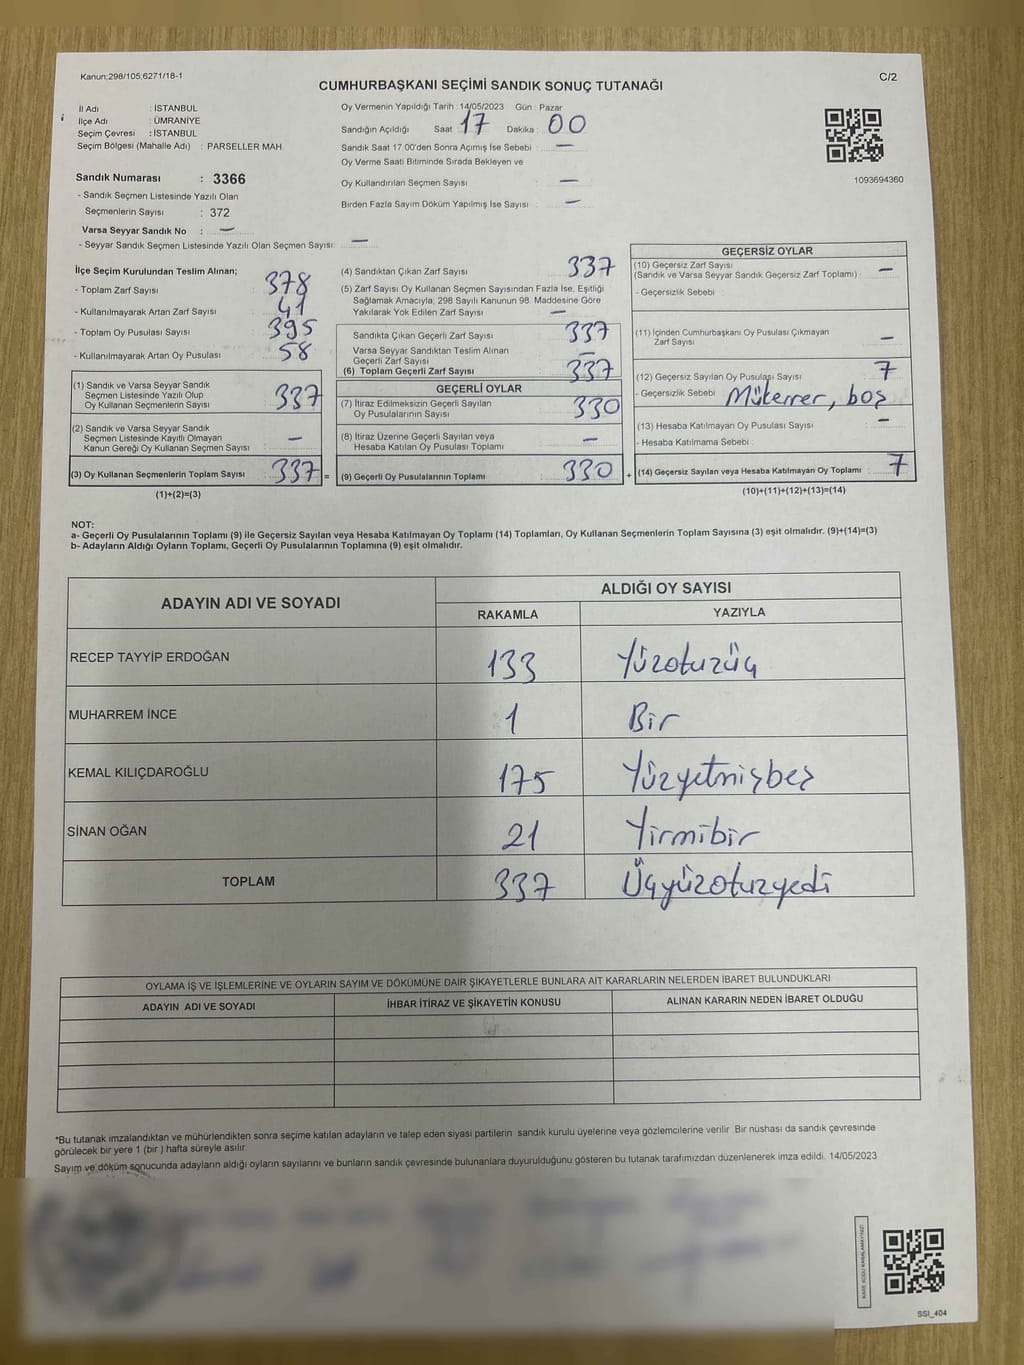 Kanun:298/105,6271/18-1
C/2
CUMHURBAŞKANI SEÇİMİ SANDIK SONUÇ TUTANAĞI
İl Adı : İSTANBUL
İlçe Adı : ÜMRANİYE
Seçim Çevresi : İSTANBUL
Seçim Bölgesi (Mahalle Adı) : PARSELLER MAH.
Sandık Numarası : 3366
- Sandık Seçmen Listesinde Yazılı Olan
Seçmenlerin Sayısı : 372
Varsa Seyyar Sandık No : —
- Seyyar Sandık Seçmen Listesinde Yazılı Olan Seçmen Sayısı: —
Oy Vermenin Yapıldığı Tarih : 14/05/2023 Gün : Pazar
Sandığın Açıldığı Saat : 17 Dakika : 00
Sandık Saat 17.00'den Sonra Açımış İse Sebebi : —
Oy Verme Saati Bitiminde Sırada Bekleyen ve
Oy Kullandırılan Seçmen Sayısı : —
Birden Fazla Sayım Döküm Yapılmış İse Sayısı : —
1093694360
İlçe Seçim Kurulundan Teslim Alınan;
- Toplam Zarf Sayısı : 378
- Kullanılmayarak Artan Zarf Sayısı : 41
- Toplam Oy Pusulası Sayısı : 395
- Kullanılmayarak Artan Oy Pusulası : 58
(1) Sandık ve Varsa Seyyar Sandık
Seçmen Listesinde Yazılı Olup
Oy Kullanan Seçmenlerin Sayısı : 337
(2) Sandık ve Varsa Seyyar Sandık
Seçmen Listesinde Kayıtlı Olmayan
Kanun Gereği Oy Kullanan Seçmen Sayısı : —
(3) Oy Kullanan Seçmenlerin Toplam Sayısı : 337 =
(1)+(2)=(3)
(4) Sandıktan Çıkan Zarf Sayısı : 337
(5) Zarf Sayısı Oy Kullanan Seçmen Sayısından Fazla İse, Eşitliği
Sağlamak Amacıyla, 298 Sayılı Kanunun 98. Maddesine Göre
Yakılarak Yok Edilen Zarf Sayısı : —
Sandıkta Çıkan Geçerli Zarf Sayısı : 337
Varsa Seyyar Sandıktan Teslim Alınan
Geçerli Zarf Sayısı : —
(6) Toplam Geçerli Zarf Sayısı : 337
GEÇERLİ OYLAR
(7) İtiraz Edilmeksizin Geçerli Sayılan
Oy Pusulalarının Sayısı : 330
(8) İtiraz Üzerine Geçerli Sayılan veya
Hesaba Katılan Oy Pusulası Toplamı : —
(9) Geçerli Oy Pusulalarının Toplamı : 330 +
GEÇERSİZ OYLAR
(10) Geçersiz Zarf Sayısı
(Sandık ve Varsa Seyyar Sandık Geçersiz Zarf Toplamı) : —
- Geçersizlik Sebebi :
(11) İçinden Cumhurbaşkanı Oy Pusulası Çıkmayan
Zarf Sayısı : —
(12) Geçersiz Sayılan Oy Pusulası Sayısı : 7
- Geçersizlik Sebebi : Mükerrer, boş
(13) Hesaba Katılmayan Oy Pusulası Sayısı : —
- Hesaba Katılmama Sebebi :
(14) Geçersiz Sayılan veya Hesaba Katılmayan Oy Toplamı : 7
(10)+(11)+(12)+(13)=(14)
NOT:
a- Geçerli Oy Pusulalarının Toplamı (9) ile Geçersiz Sayılan veya Hesaba Katılmayan Oy Toplamı (14) Toplamları, Oy Kullanan Seçmenlerin Toplam Sayısına (3) eşit olmalıdır. (9)+(14)=(3)
b- Adayların Aldığı Oyların Toplamı, Geçerli Oy Pusulalarının Toplamına (9) eşit olmalıdır.
ADAYIN ADI VE SOYADI
ALDIĞI OY SAYISI
RAKAMLA YAZIYLA
RECEP TAYYİP ERDOĞAN 133 Yüzotuzüç
MUHARREM İNCE 1 Bir
KEMAL KILIÇDAROĞLU 175 Yüzyetmişbeş
SİNAN OĞAN 21 Yirmibir
TOPLAM 337 Üçyüzotuzyedi
OYLAMA İŞ VE İŞLEMLERİNE VE OYLARIN SAYIM VE DÖKÜMÜNE DAİR ŞİKAYETLERLE BUNLARA AİT KARARLARIN NELERDEN İBARET BULUNDUKLARI
ADAYIN ADI VE SOYADI İHBAR İTİRAZ VE ŞİKAYETİN KONUSU ALINAN KARARIN NEDEN İBARET OLDUĞU
*Bu tutanak imzalandıktan ve mühürlendikten sonra seçime katılan adayların ve talep eden siyasi partilerin sandık kurulu üyelerine veya gözlemcilerine verilir. Bir nüshası da sandık çevresinde
görülecek bir yere 1 (bir ) hafta süreyle asılır.
Sayım ve döküm sonucunda adayların aldığı oyların sayılarını ve bunların sandık çevresinde bulunanlara duyurulduğunu gösteren bu tutanak tarafımızdan düzenlenerek imza edildi. 14/05/2023
KARE KODU KARALAMAYINIZ!
SSI_404